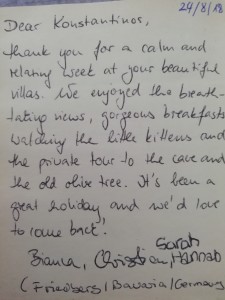 24/8/18
Dear Konstantinos,
thank you for a calm and
relaxing week at your beautiful
villas. We enjoyed the breath-
taking views, gorgeous breakfasts
watching the little kittens and
the private tour to the cave and
the old olive tree. It's been a
great holiday and we'd love
to come back!
Sarah
Bianca, Christian, Hannah
(Friedberg/Bavaria/Germany